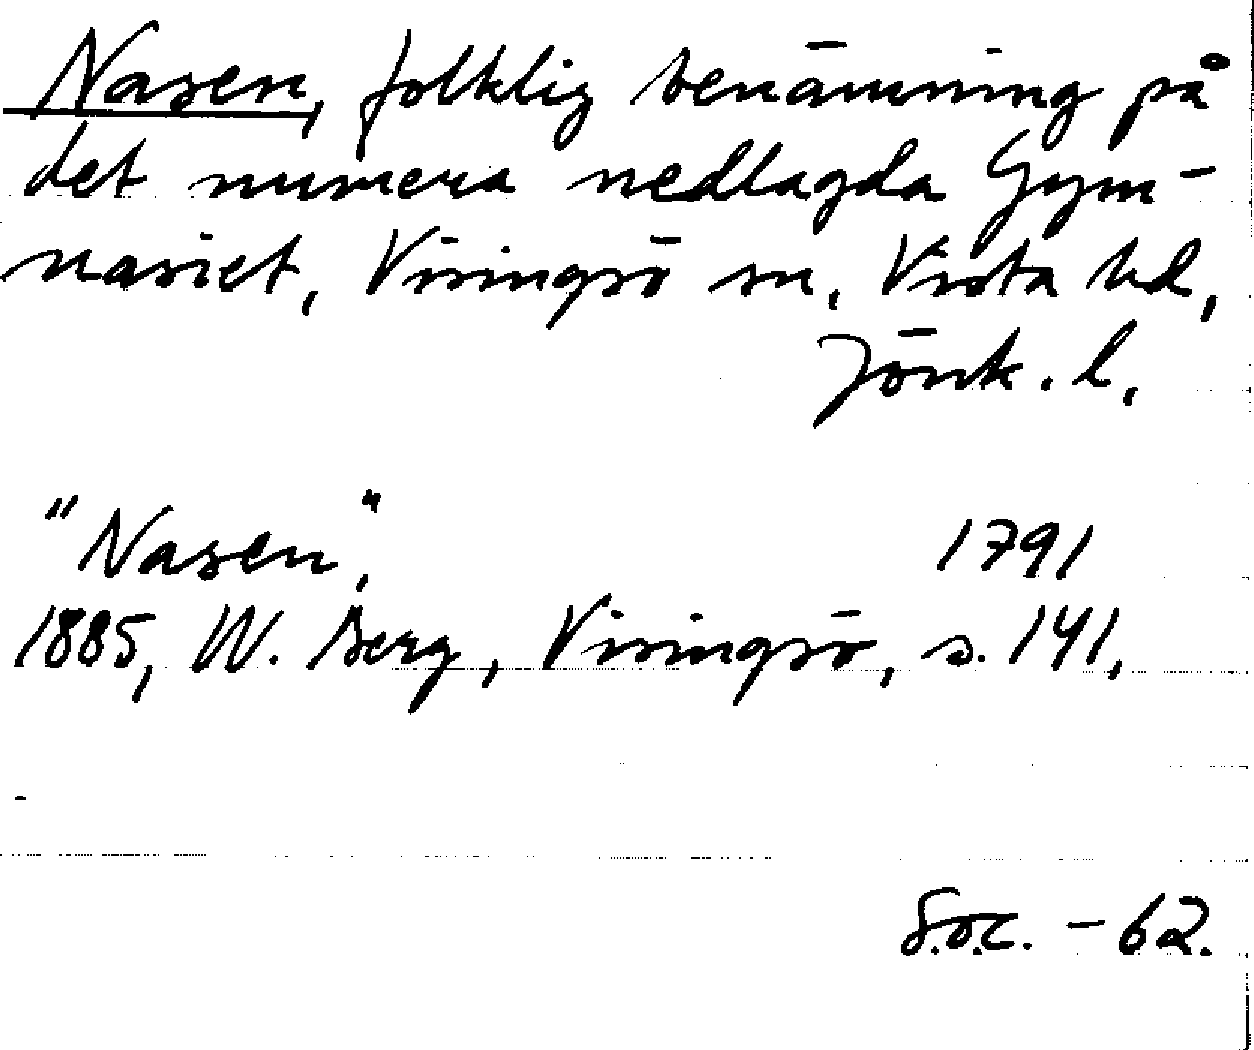 Nasen, folklig benämning på
det numera nedlagda Gym-
nasiet, Visingsö sn, Vista hd,
Jönk. l.
"Nasen", 1791
1885, W. Berg, Visingsö, s. 141.
S.o.c. - 62.